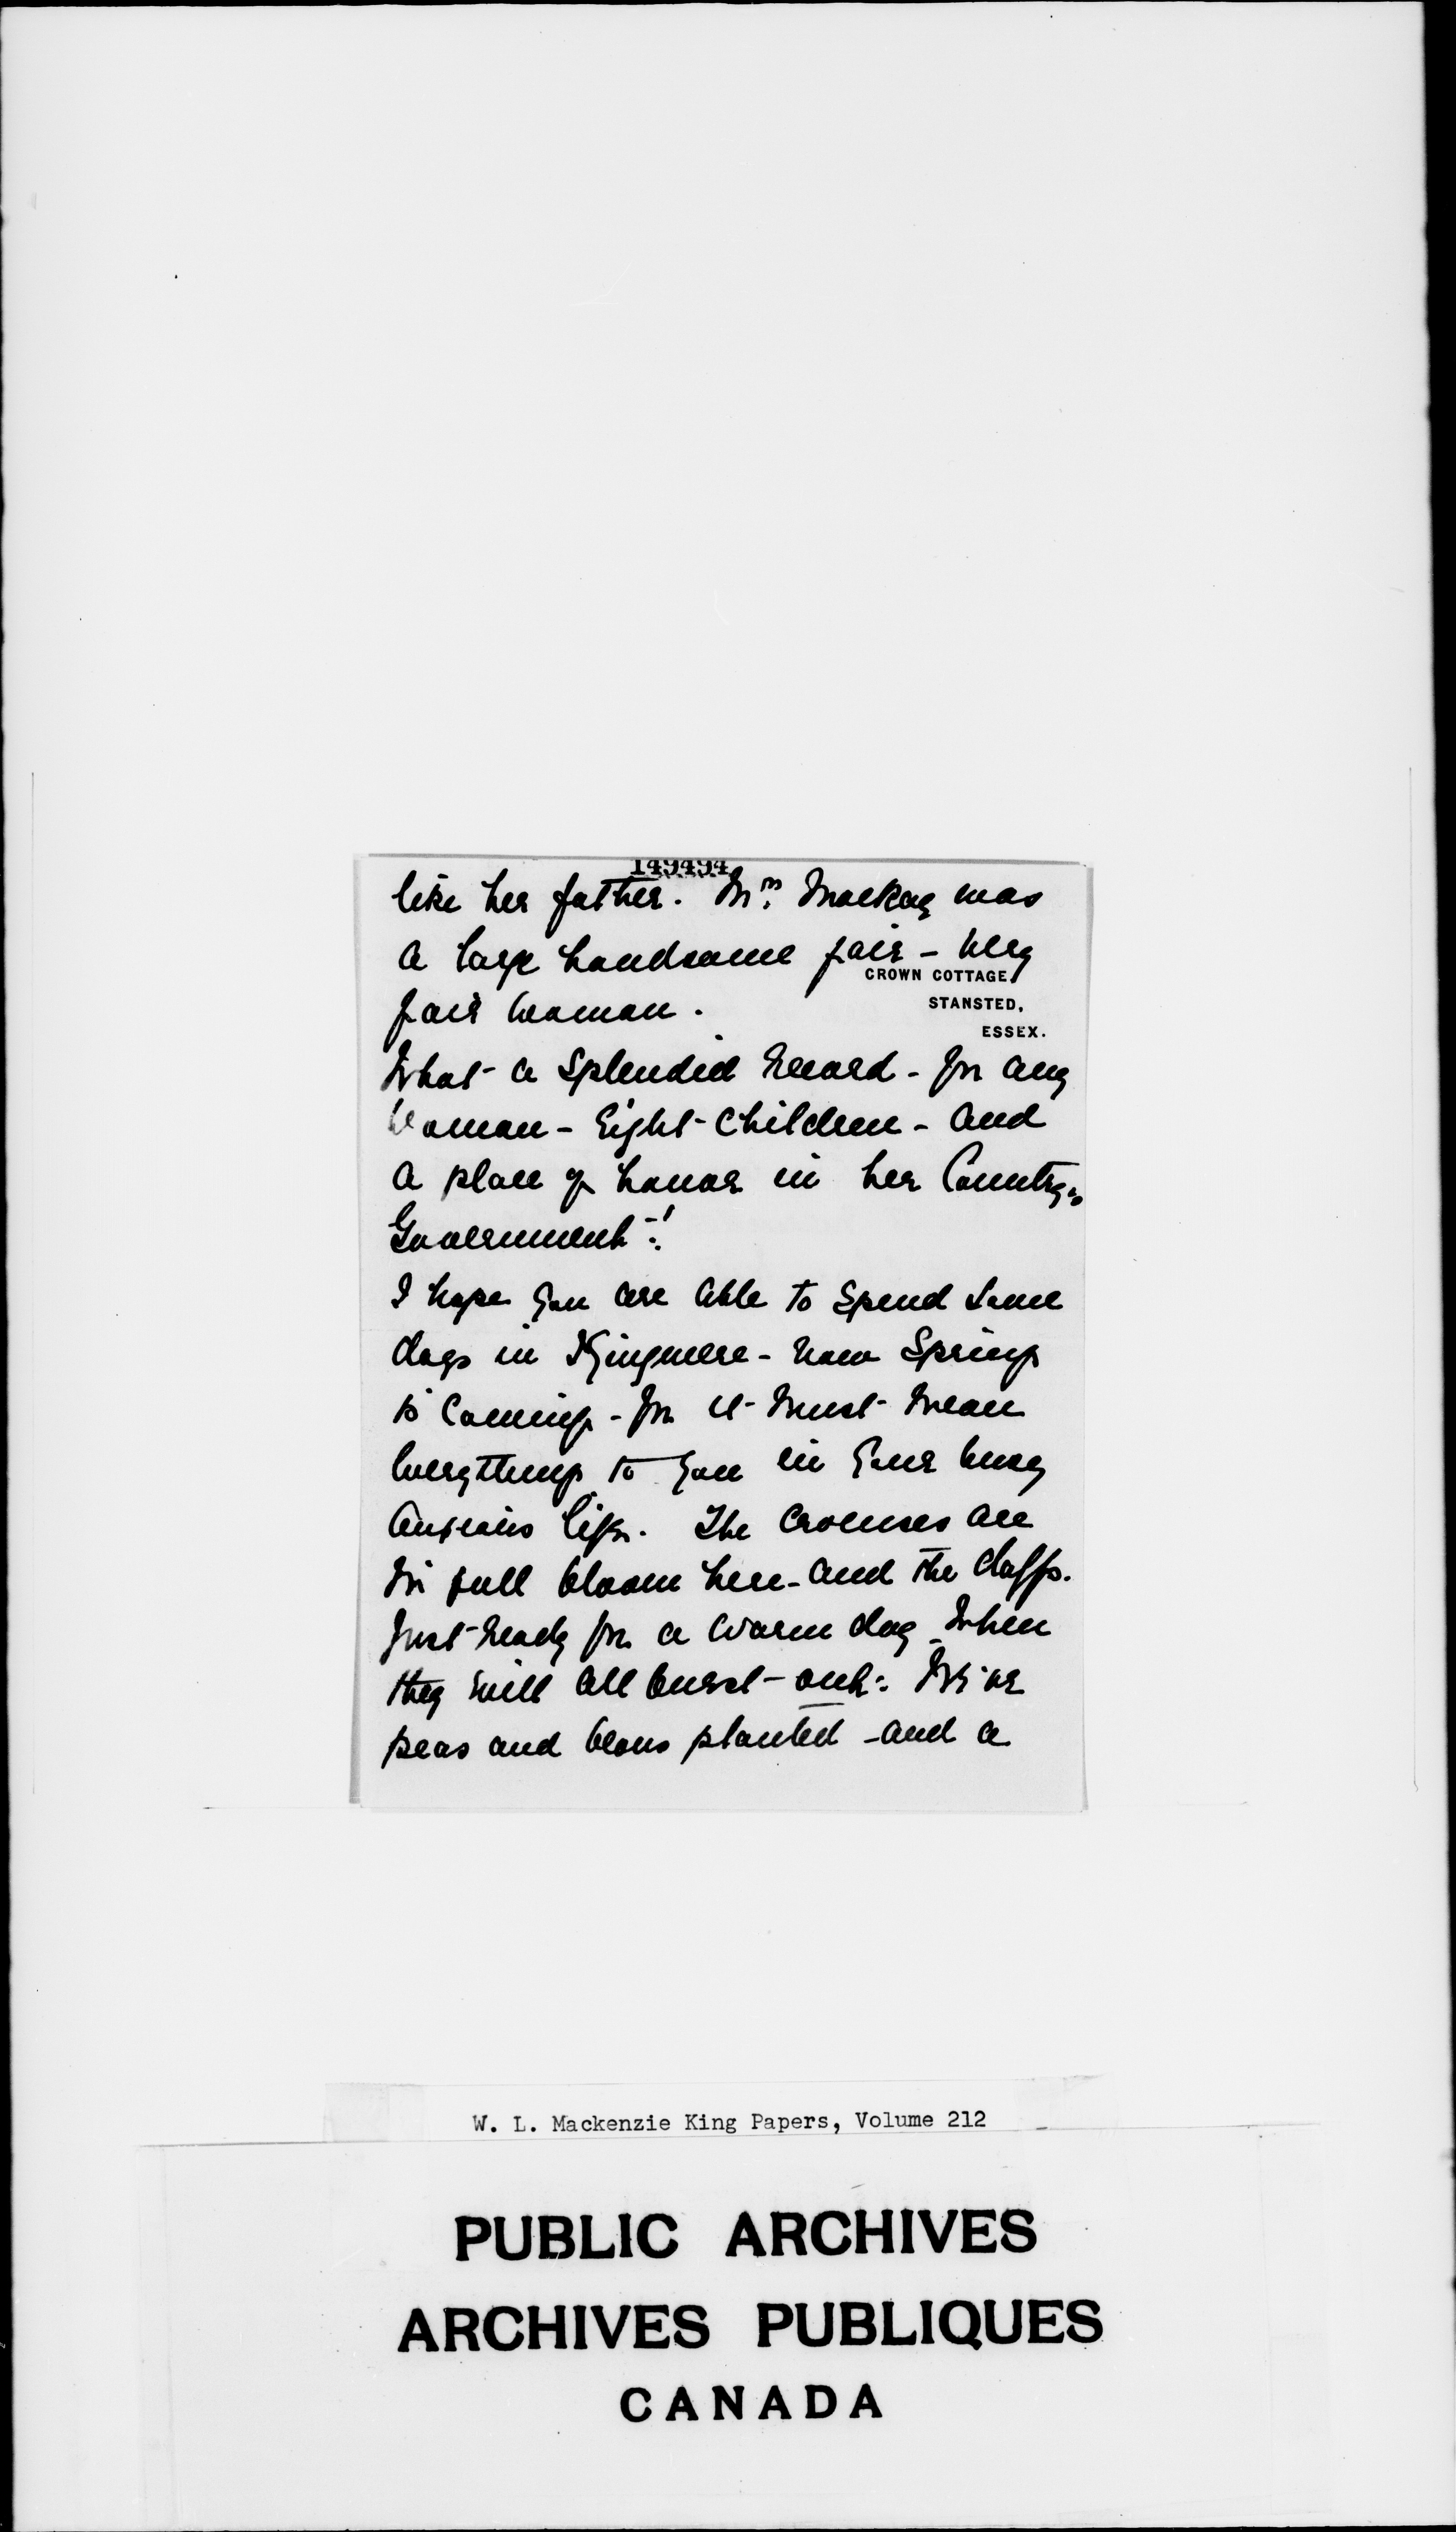 149494
like her father. Mrs. Mackay was
a large handsome fair - very
CROWN COTTAGE,
STANSTED,
ESSEX.
fair woman.
What a splendid record - for any
woman - Eight children - and
a place of honor in her Country's
Government!
I hope you are able to spend some
days in Kingmere - now Spring
is coming - for it must mean
everything to you in your busy
anxious life. The crocuses are
in full bloom here - and the daffs.
just ready for a warm day when
they will all burst out. We've
peas and beans planted - and a
W. L. Mackenzie King Papers, Volume 212
PUBLIC ARCHIVES
ARCHIVES PUBLIQUES
CANADA